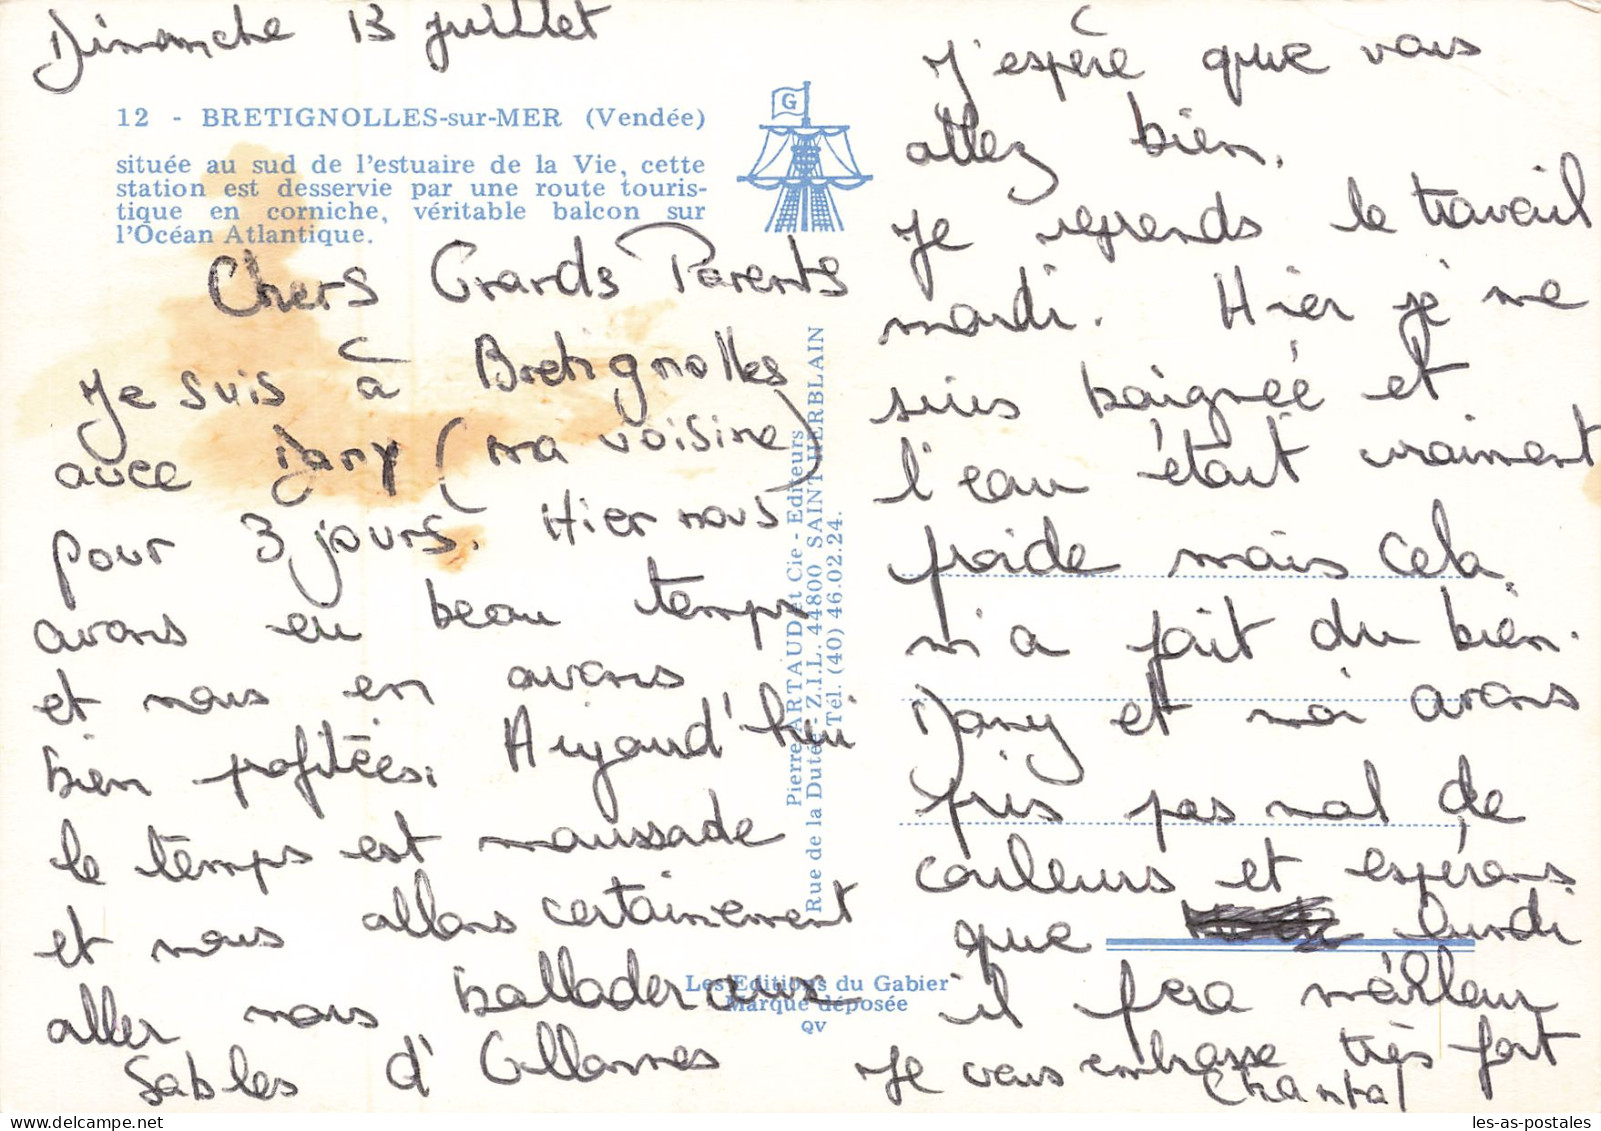 Dimanche 13 juillet
12 - BRETIGNOLLES-sur-MER (Vendée)
située au sud de l'estuaire de la Vie, cette
station est desservie par une route touris-
tique en corniche, véritable balcon sur
l'Océan Atlantique.
G
Chers Grands Parents
Je suis à Bretignolles
avec Dany (ma voisine)
pour 3 jours. Hier nous
avons eu beau temps
et nous en avons
bien profitées. Aujourd'hui
le temps est maussade
et nous allons certainement
aller nous ballader aux
Sables d'Ollonnes
Pierre ARTAUD et Cie - Editeurs
Rue de la Dutée - Z.I.L. 44800 SAINT-HERBLAIN
Tél. (40) 46.02.24.
Les Editions du Gabier
Marque déposée
QV
J'espère que vous
allez bien.
Je reprends le travail
mardi. Hier je me
suis baignée et
l'eau était vraiment
froide mais cela
m'a fait du bien.
Dany et moi avons
pris pas mal de
couleurs et espérons
que lundi
il fera meilleur
Je vous embrasse très fort
Chantal
les-as-postales